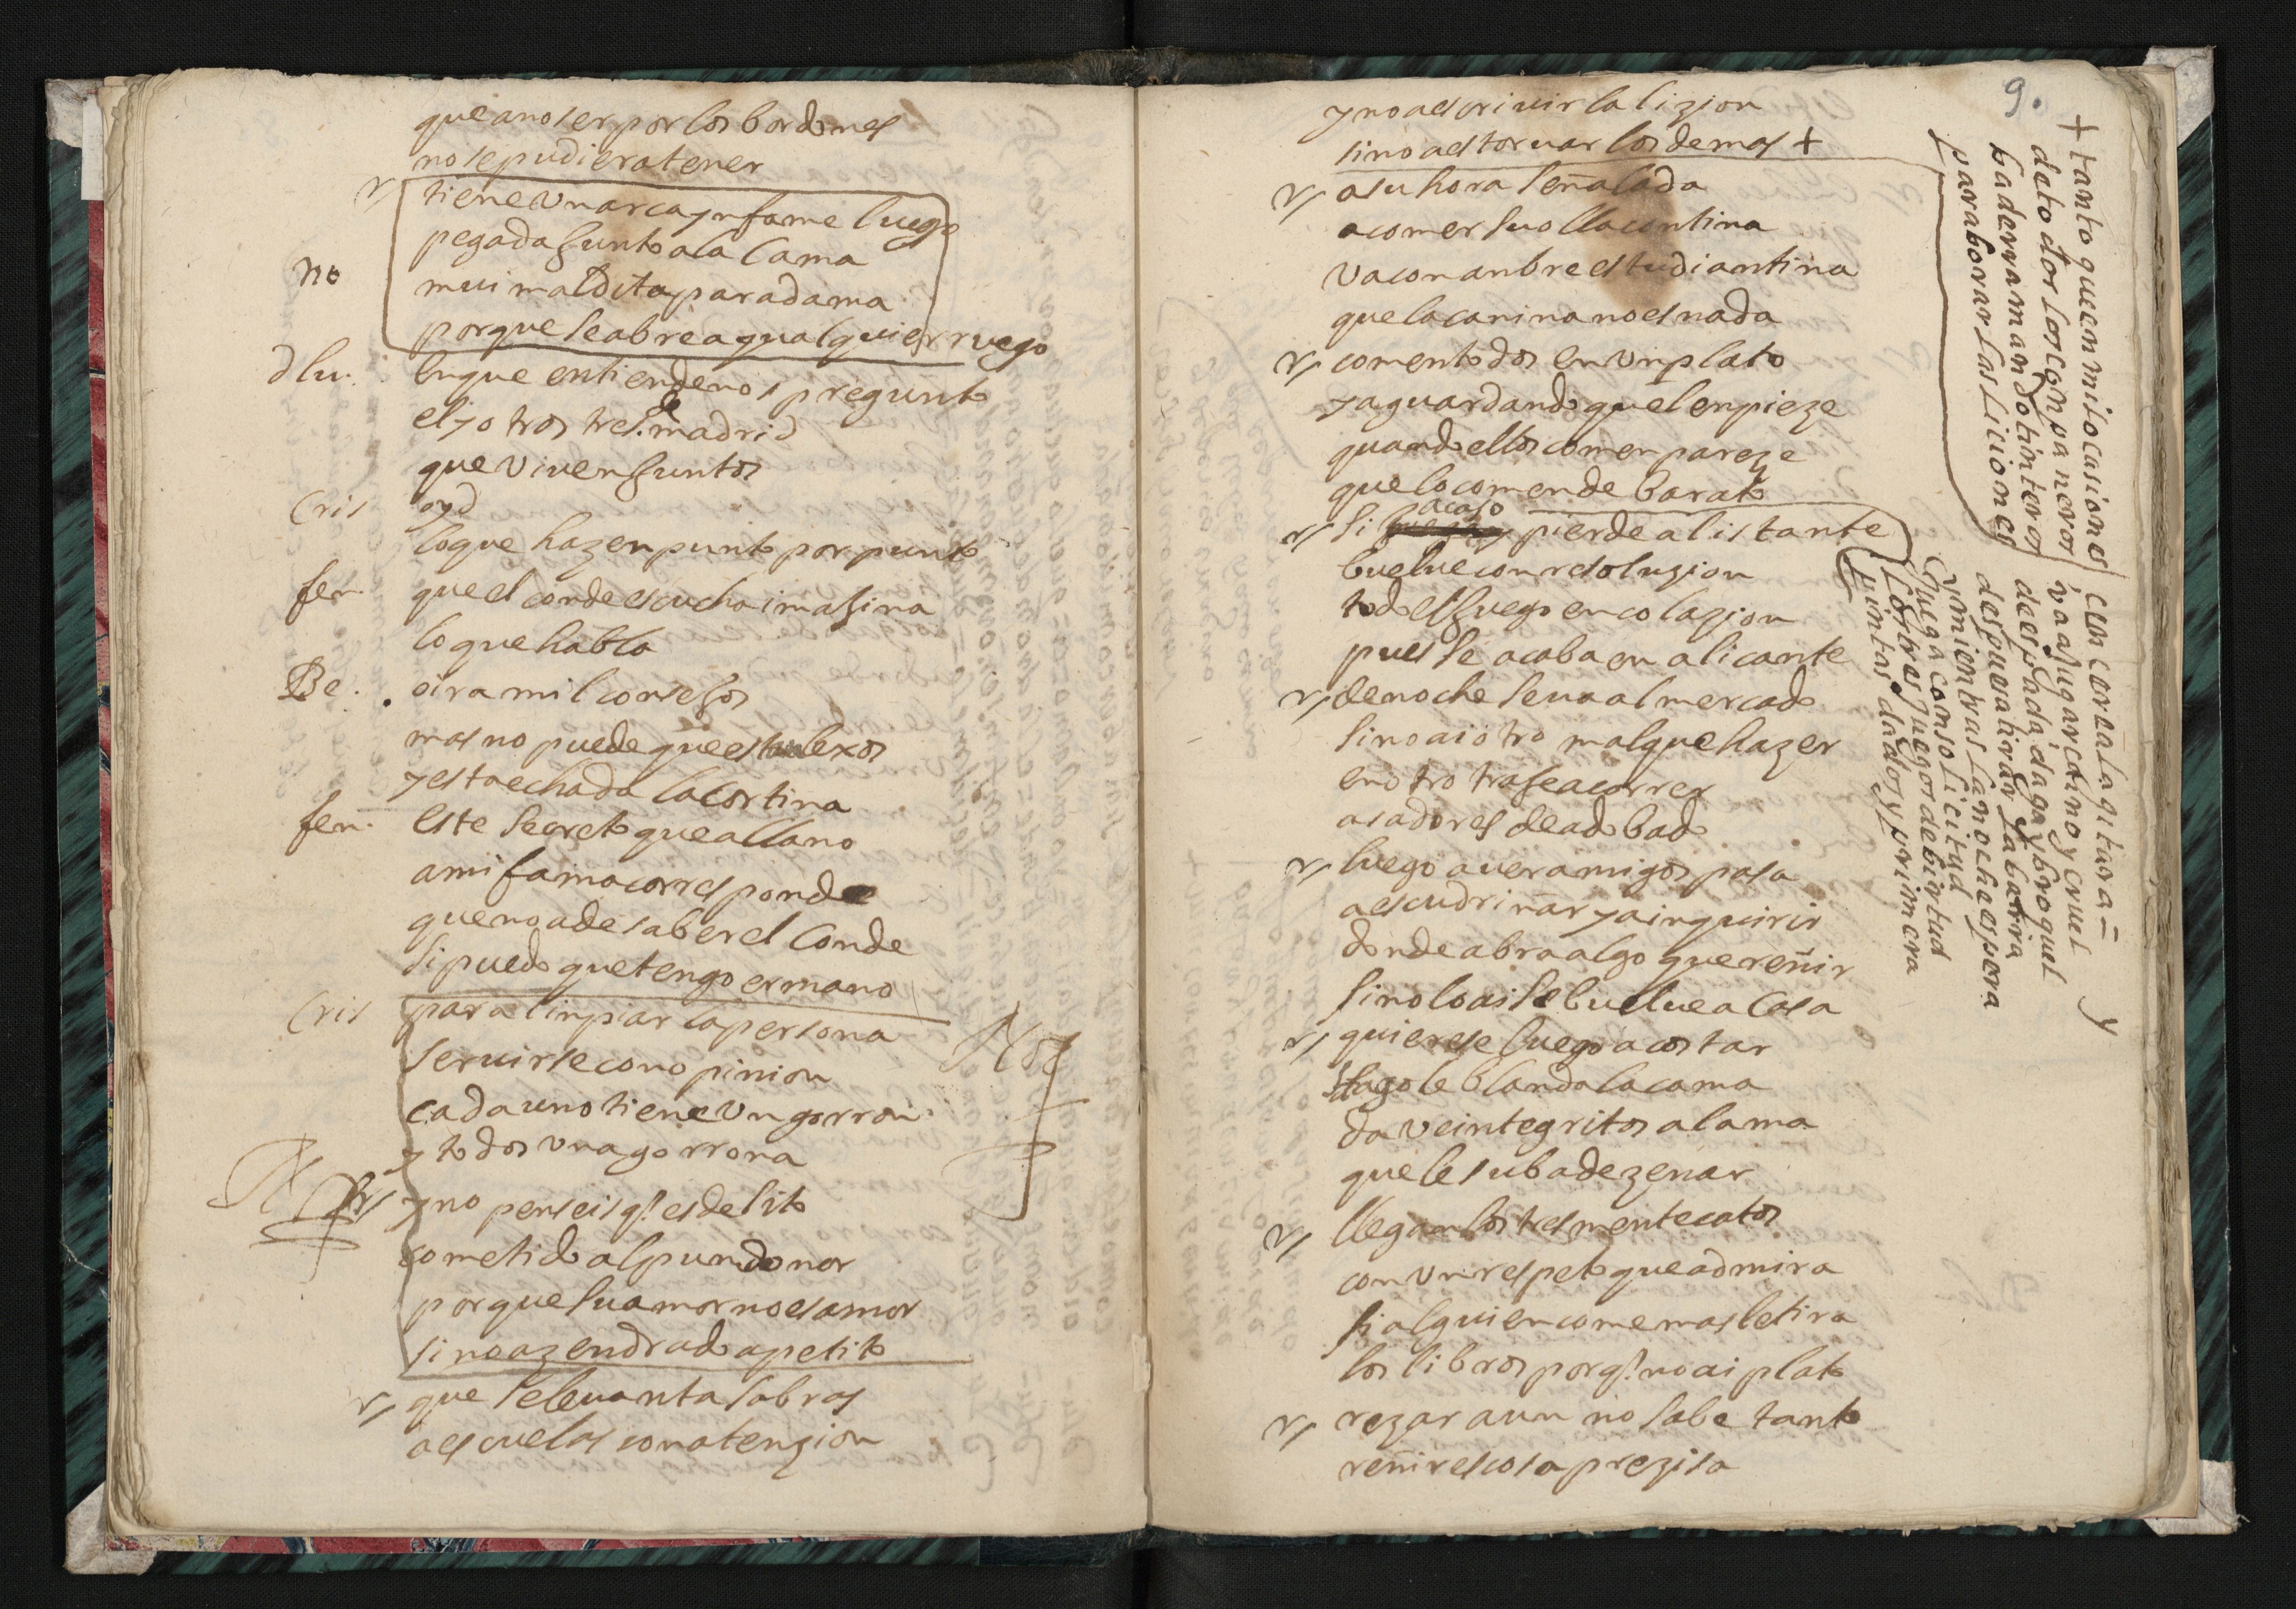 que a no ser por los bordones
no se pudiera tener
tiene vn arca ynfame luego
pegada junto a la cama
no
mui maldita para dama
porque se abre a qualquier ruego
d lu. en que entienden os pregunto
el y otros tres de madrid
que viven juntos
Cris oyd
lo que hazen punto por punto
fer. que el conde escucha imajina
lo que habla
Be. oira mil consejos
mas no puede que esta lexos
y esta echada la cortina
fer. este secreto que allano
a mi fama corresponde
que no a de saber el Conde
si puedo que tengo ermano
Cris para linpiar la persona
seruirse con opinion
cada uno tiene vn gorron
y todos vna gorrona
y no penseis q. es delito
cometido al pundonor
porque su amor no es amor
sino azendrado apetito
que se leuanta sabras
a escuelas con atenzion
9.
y no a escriuir la lizion
sino a estoruar los demas +
a su hora señalada
a comer su olla contina
va con anbre estudiantina
que la canina no es nada
comen todos en vn plato
y aguardando quel enpieze
quando ellos comen pareze
que lo comen de barato
si acaso pierde al istante
buelue con resoluzion
todo el juego en colazion
pues se acaba en alicante
de noche se va al mercado
si no ai otro mal que hazer
en otro traje a correr
asadores de adobado
luego a ver amigos pasa
a escudriñar y a inquirir
donde abra algo que reñir
si no lo ai se buelue a casa
quierese luego acostar
hagole blanda la cama
da veinte gritos al ama
que le suba de zenar
llegan los tres mentecatos
con vn respeto que admira
si alguien come mas le tira
los libros porq. no ai plato
rezar aun no sabe tanto
reñir es cosa prezisa
+ tanto que en mil ocasiones
de todos los conpaneros
ba derramando tinteros
para borrar las liciones
en cen cerza la gitara = y
va a jugar cano y cruel
de espada daga y broquel
despues a tirar la barra
y mientras la noche espera
juega con solicitud
los tres juegos de birtud
pintas dados y primera